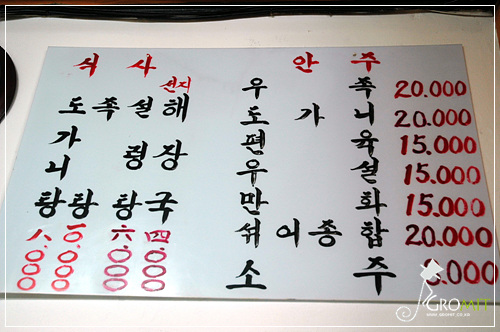 식 사
선지
해장국 四,000
설렁탕 六,000
족탕 一0,000
도가니탕 八,000
안 주
우 족 20.000
도 가 니 20.000
편 육 15.000
우 설 15.000
만 화 15.000
섞 어 종 합 20.000
소 주